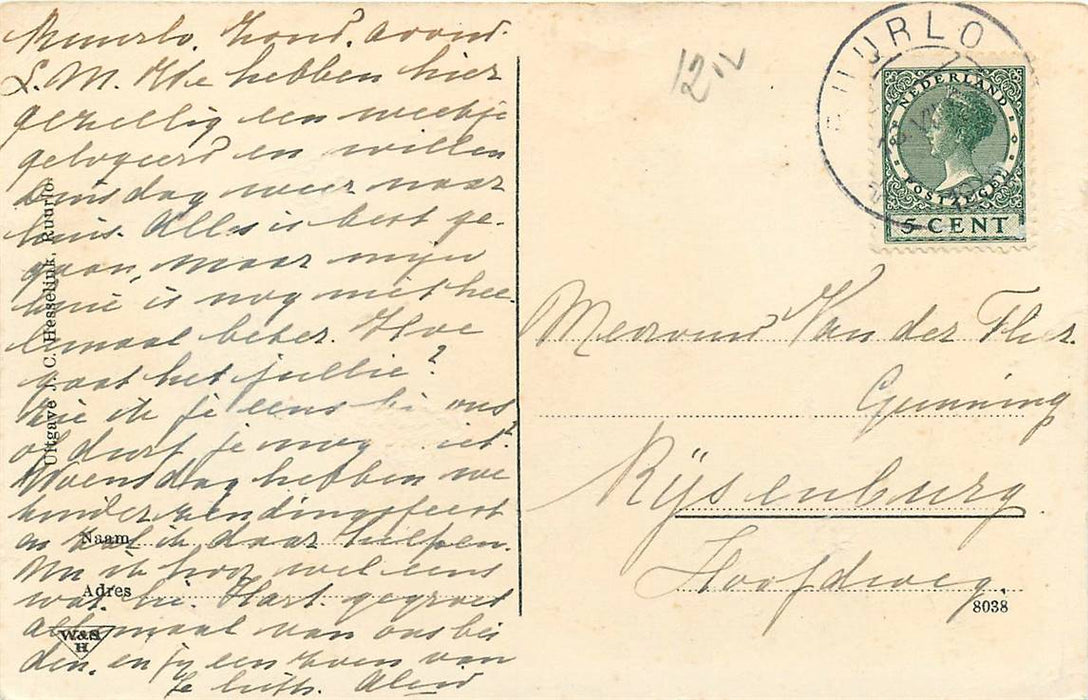 Ruurlo. Zond. avond.
L. M. We hebben hier
gezellig een weekje
gelogeerd en willen
dinsdag weer naar
huis. Alles is best ge-
gaan, maar mijn
knie is nog niet hee-
lemaal beter. Hoe
gaat het jullie?
Zie ik je eens bij ons
of durf je nog niet?
Woensdag hebben we
kinderzendingsfeest
en zal ik daar helpen.
Nu ik hoor wel eens
wat hè. Hart. gegroet
allemaal van ons bei
den, en jij een zoen van
je liefh. Alein
Uitgave J. C. Hesselink, Ruurlo.
Naam
Adres
W&S
H
12
RUURLO
NEDERLAND
POSTZEGEL
5 CENT
Mevrouw Van der Flier
Gunning
Rijsenburg
Hoofdweg.
8038